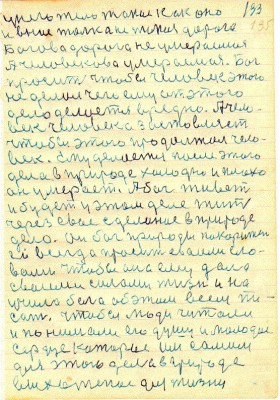 133
135
такое как оно
дорога
Богова дорога не умераемая
А человекова умераемая. Бог
просит чтобы человек этого
не делал чего ему от этого
дело делается вредно. А чело-
век человека заставляет
чтобы этого продолжал чело-
век. Ему делается после этого
дела в природе холодно и плохо
он умерает. А Бог живет
и будет у этом деле жить
через свое сделаное в природе
дело. Он бог природы
ей всегда просит своими сло-
вами чтобы она ему дала
своими силами жизни и на
учила бога об этом всем пи-
сать. чтобы люди читали
и понимали его душу и молодое
сердце которое им самим
для этого дела в природе
для жизни